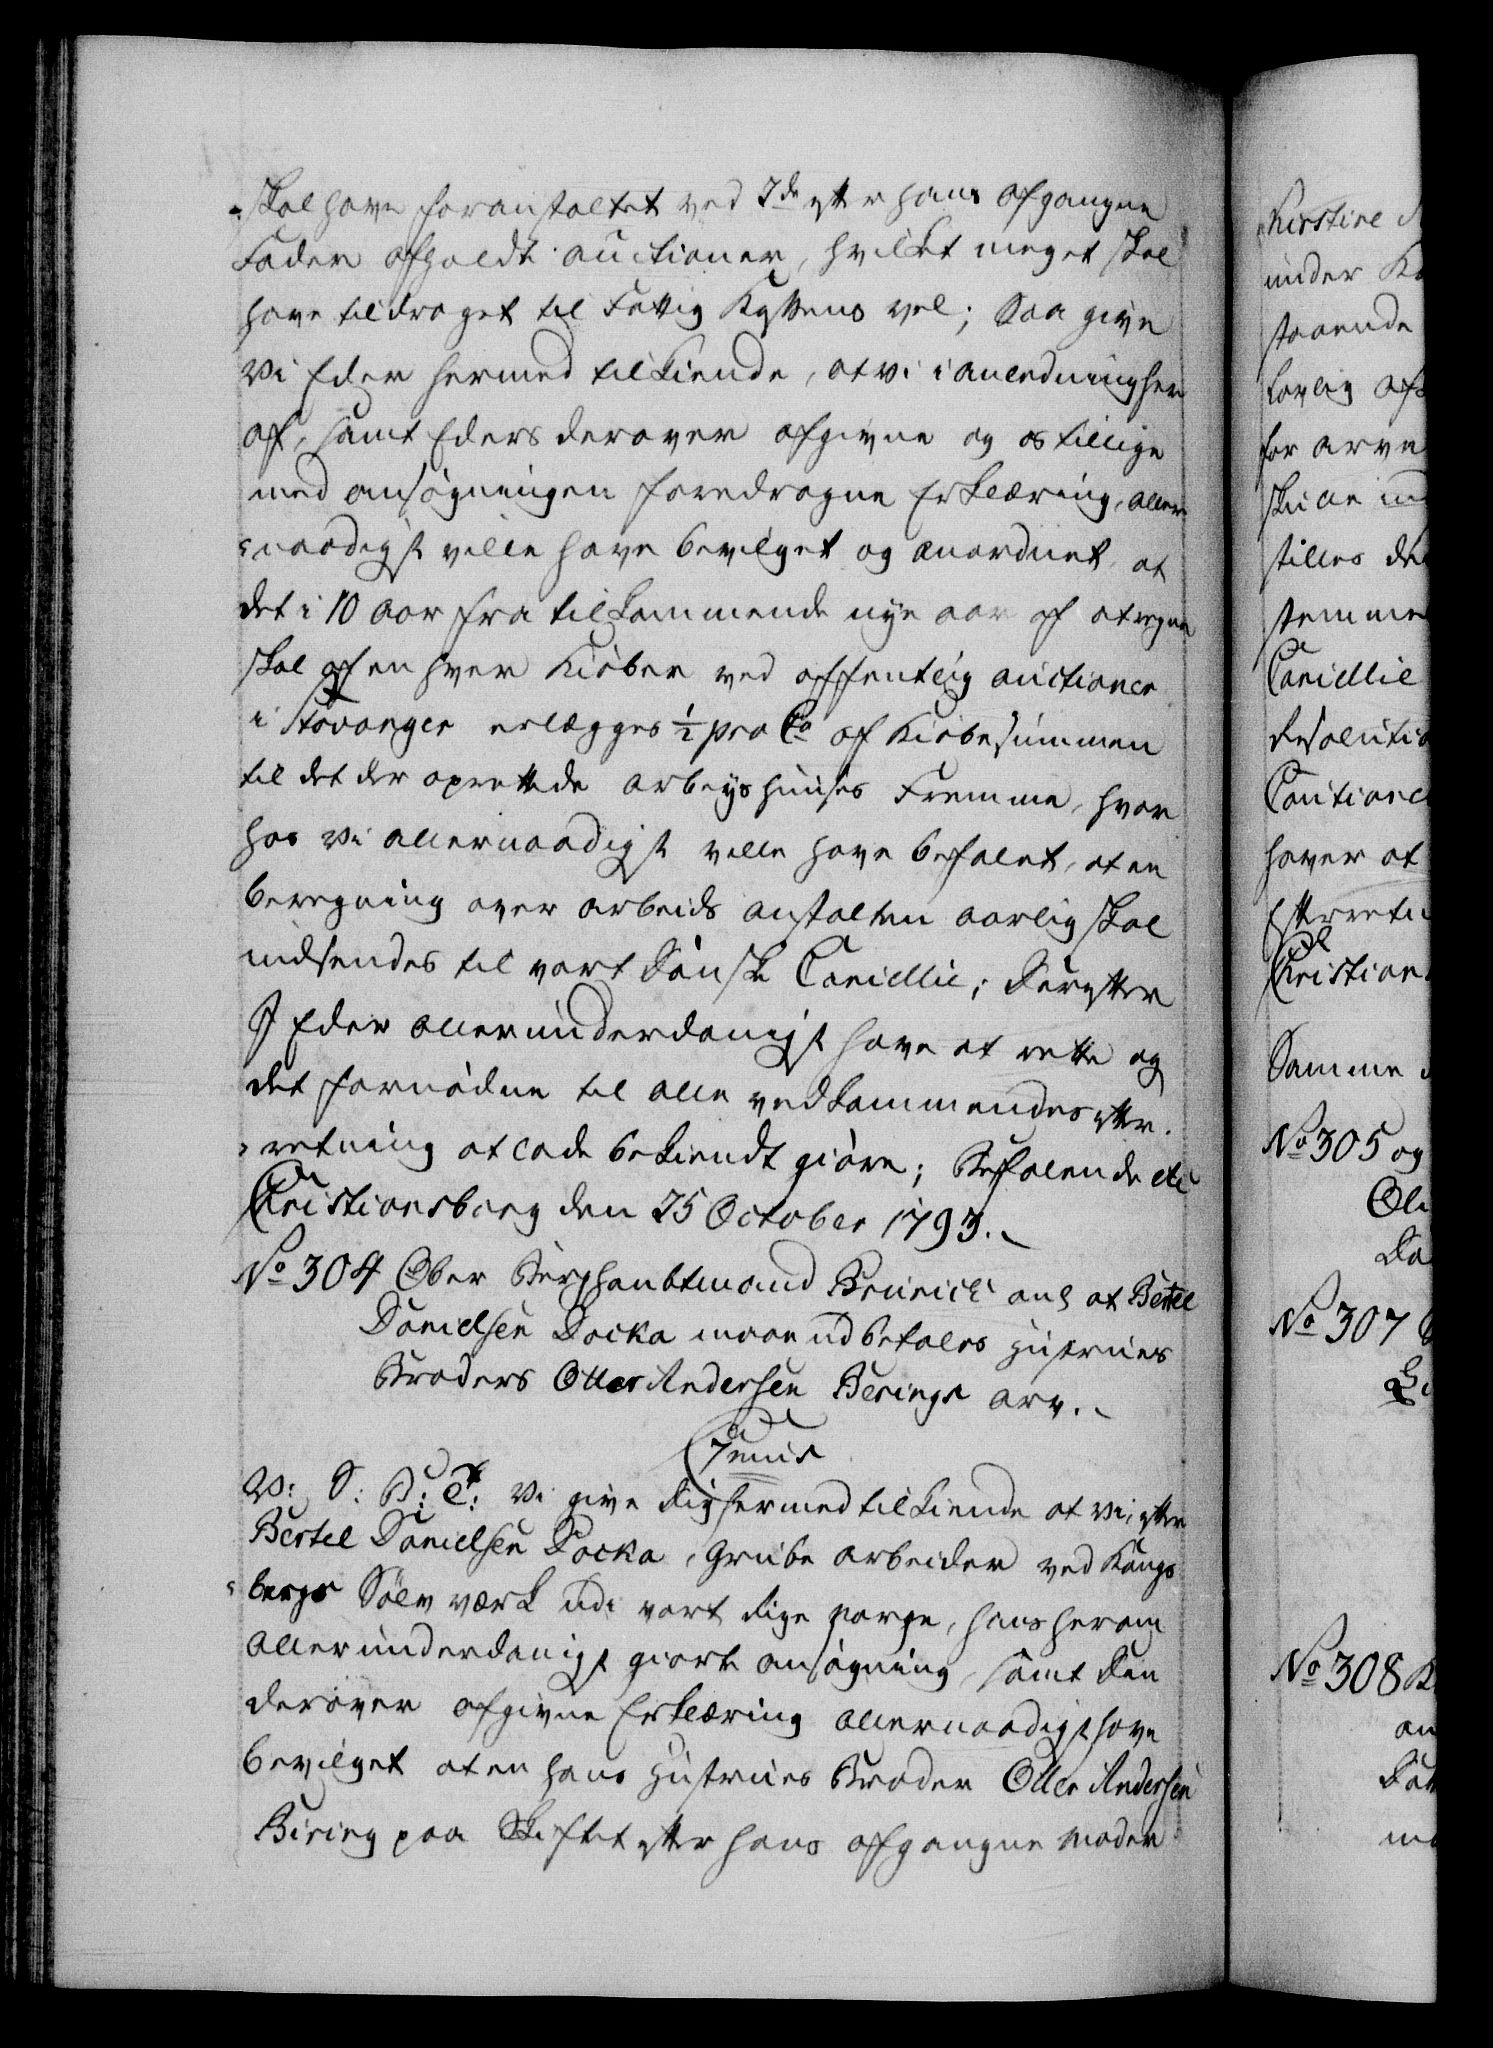 skal have foranstaltet ved 2de efter hans afgangne
Fader afholdte auctioner, hvilket meget skal
have tildraget til Fattig Kassens vel; Saa give
vi Eder hermed tilkiende, at vi i anledning her
af, samt Eders derover afgivne og os tillige
med ansøgningen foredragne Erklæring, aller¬
naadigst ville have bevilget og anordnet, at
det i 10 aar fra tilkommende nye aar af at regne
skal af en hver Kiøber ved offentlig auctioner
i Stavanger erlægges ½ pro Cto af Kiøbesummen
til det der oprettede arbeydshuuses Fremme, hvor
hos vi allernaadigst ville have befalet, at en
beregning over arbeids anstalten aarlig skal
indsendes til vort Danske Cancellie; Derefter
I Eder allerunderdanigst have at rette og
det fornødne til alle vedkommendes efter¬
retning at lade bekiendt giøre; Befalende etc
Christiansborg den 25 October 1793.
No 304 Ober Berghaubtmand Brünich anl at Bertel
Danielsen Docka maae udbetales Hustrues
Broders Oller Andersen Berings arv.
C 7mus
V: G: B: T: Vi give dig hermed tilkiende at vi, efter
Bertel Danielsen Docka, Grube arbeider ved Kongs
bergs Sølv værk udi vort Rige Norge, hans herom
allerunderdanigst giorte ansøgning, samt Din
derover afgivne Erklæring allernaadigst have
bevilget at en hans Hustrues Broder Oller Andersen
Biering paa Skiftet efter hans afgangne Moder
Kirstine
under
staaende
lovlig
for arve
stilles
stemme
Cancellie
Resolutio
havet at
Efterretn
Christians
Samme
No 305 og
Ole
No 307
No 308